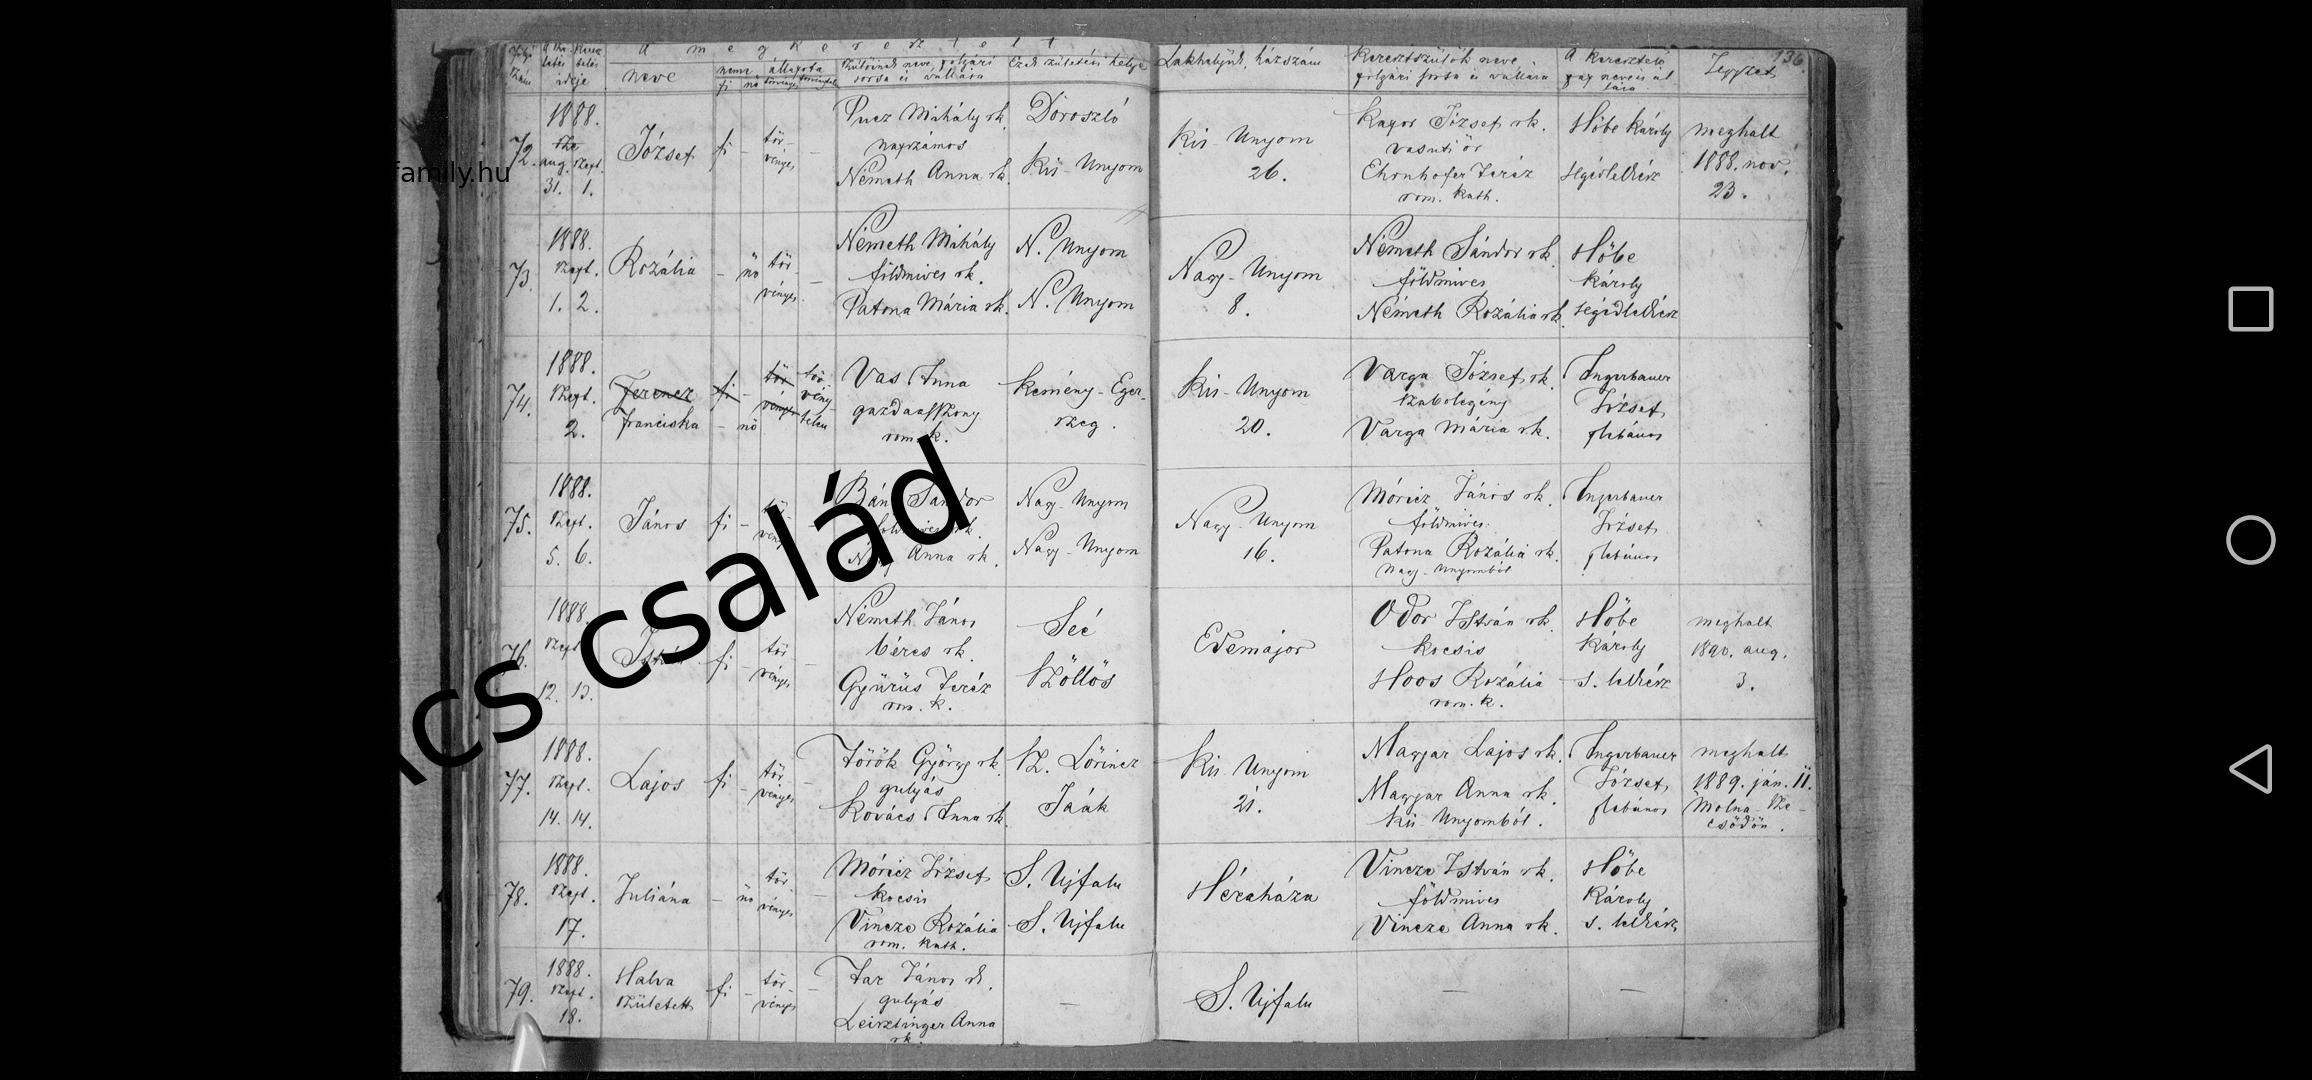 a megkeresztelt
neve
neme
állapota
fi
nő
Lakhelyük, házszám
keresztszülők neve
Jegyzet
136.
72.
1888.
aug. szept.
31. 1.
József
fi
tör-
vényes
Pucz Mihály rk.
napszámos
Németh Anna rk.
Doroszló
Kis-Unyom
Kis-Unyom
26.
József rk.
vasuti őr
Teréz
rom. kath.
Höbe Károly
segédlelkész
meghalt
1888. nov.
23.
73.
1888.
szept.
1. 2.
Rozália
nő
tör-
vényes
Németh Mihály
földmives rk.
Patona Mária rk.
N. Unyom
N. Unyom
Nagy-Unyom
8.
Németh Sándor rk.
földmives
Németh Rozália rk.
Höbe
Károly
segédlelkész
74.
1888.
szept.
2.
Ferencz
Franciska
fi
nő
tör-
vényes
tör-
vény-
telen
Vas Anna
gazdaasszony
rom. k.
Kemény-Eger-
szeg.
Kis-Unyom
20.
Varga József rk.
szabolegény
Varga Mária rk.
József
plébános
75.
1888.
szept.
5. 6.
János
fi
Sándor
Anna rk.
Nagy-Unyom
Nagy-Unyom
Nagy-Unyom
16.
Móricz János rk.
földmives
Patona Rozália rk.
Nagy-Unyomból
József
plébános
76.
1888.
szept.
12. 13.
fi
tör-
vényes
Németh János
béres rk.
Gyürüs Teréz
rom. k.
Séé
Szöllös
Edemájor
Odor István rk.
kocsis
Hoos Rozália
rom. k.
Höbe
Károly
s. lelkész
meghalt
1890. aug.
3.
77.
1888.
szept.
14. 14.
Lajos
fi
tör-
vényes
Török György rk.
gulyás
Kovács Anna rk.
Sz. Lörincz
Jaák
Kis-Unyom
21.
Magyar Lajos rk.
Magyar Anna rk.
Kis-Unyomból.
József
plébános
meghalt
1889. ján. 11.
Molna-Sze-
csődön.
78.
1888.
szept.
17.
Juliána
nő
tör-
vényes
Móricz József
kocsis
Vincze Rozália
rom. kath.
S. Ujfalu
S. Ujfalu
Héraháza
Vincze István rk.
földmives
Vincze Anna rk.
Höbe
Károly
s. lelkész
79.
1888.
szept.
18.
Halva
született
fi
tör-
vényes
Tar János rk.
gulyás
Leisztinger Anna
rk.
S. Ujfalu
family.hu
ics család